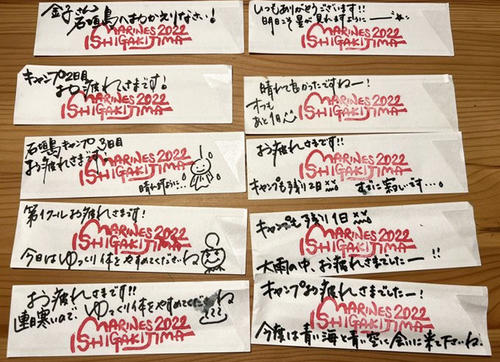 金子さん
石垣島へおかえりなさい!
MARINES 2022
ISHIGAKIJIMA
キャンプ2日目
お疲れさまです!
MARINES 2022
ISHIGAKIJIMA
石垣島キャンプ3日目
お疲れさまです。
MARINES 2022
ISHIGAKIJIMA
晴れますように…
第1クールお疲れさまです!
MARINES 2022
ISHIGAKIJIMA
今日はゆっくり体をやすめてくださいね
お疲れさまです!!
連日寒いので、ゆっくり体をやすめてくださいね
MARINES 2022
ISHIGAKIJIMA
いつもありがとうございます!
明日こそ星が見れますように
MARINES 2022
ISHIGAKIJIMA
晴れて良かったですねー!
あと1日
MARINES 2022
ISHIGAKIJIMA
お疲れさまです!!
MARINES 2022
ISHIGAKIJIMA
キャンプも残り2日
すでに寂しいです…。
キャンプも残り1日
MARINES 2022
ISHIGAKIJIMA
大雨の中、お疲れさまでしたー!!
キャンプお疲れさまでしたー!
MARINES 2022
ISHIGAKIJIMA
今度は青い海と青い空に会いに来て下さいね!